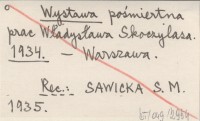 Wystawa pośmiertna
prac Władysława Skoczylasa.
1934. — Warszawa.
Rec.: SAWICKA S. M.
1935.